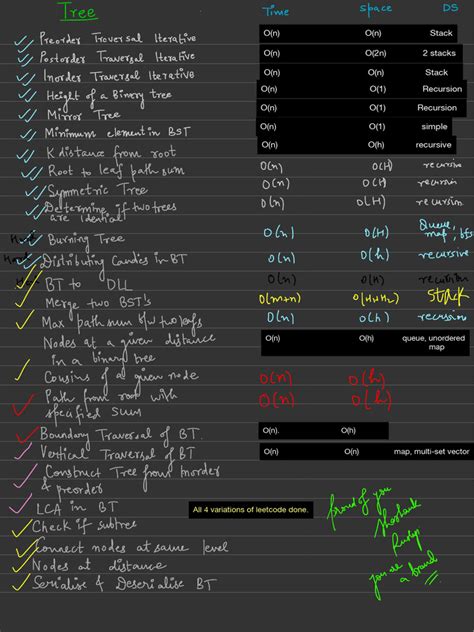 Tree Time space DS
Preorder Traversal Iterative O(n) O(n) Stack
Postorder Traversal Iterative O(n) O(2n) 2 stacks
Inorder Traversal Iterative O(n) O(n) Stack
Height of a Binary tree O(n) O(1) Recursion
Mirror Tree O(n) O(1) Recursion
Minimum element in BST O(n) O(1) simple
K distance from root O(n) O(h) recursive
Root to leaf path sum O(n) O(H) recursive
Symmetric Tree O(n) O(H) recursion
Determine if two trees are identical O(n) O(H) recursion
Burning Tree O(n) O(H) Queue, map, bfs
Distributing Candies in BT O(n) O(h) recursive
BT to DLL O(n) O(H) recursion
Merge two BST's O(m+n) O(H1+H2) Stack
Max path sum b/w two leafs O(n) O(h) recursion
Nodes at a given distance in a binary tree O(n) O(h) queue, unordered map
Cousins of a given node O(n) O(h)
Path from root with specified sum O(n) O(h)
Boundary Traversal of BT. O(n). O(h)
Vertical Traversal of BT O(n) O(n) map, multi-set vector
Construct Tree from inorder & preorder
LCA in BT All 4 variations of leetcode done.
Check if subtree
Connect nodes at same level
Nodes at distance
Serialise & Deserialise BT
Proud of you
you are a brand